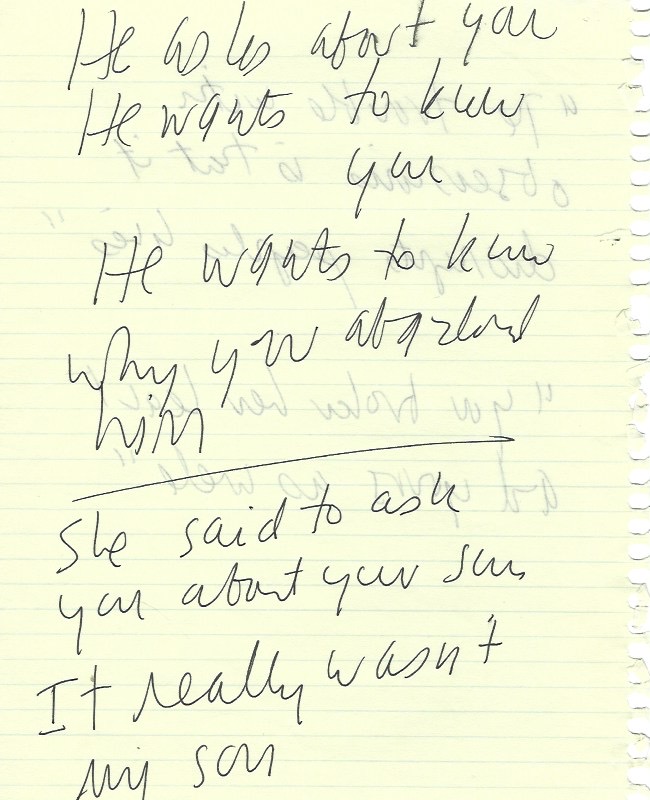 He asks about you
He wants to know
you
He wants to know
why you abandoned
him
She said to ask
you about your son
It really wasn't
my son